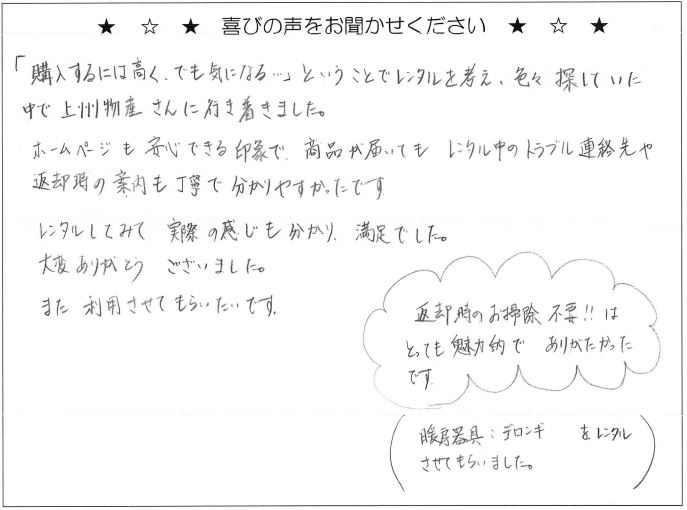 ★ ☆ ★ 喜びの声をお聞かせください ★ ☆ ★
「購入するには高く、でも気になる…」ということでレンタルを考え、色々 探していた
中で 上州物産 さんに行き着きました。
ホームページも 安心できる印象で、商品が届いても レンタル中のトラブル連絡先や
返却時の案内も丁寧で分かりやすかったです。
レンタルしてみて 実際の感じも分かり、満足でした。
大変ありがとう ございました。
また 利用させてもらいたいです。
返却時のお掃除 不要!! は
とっても魅力的で ありがたかった
です。
(暖房器具:デロンギ をレンタル
させてもらいました。)